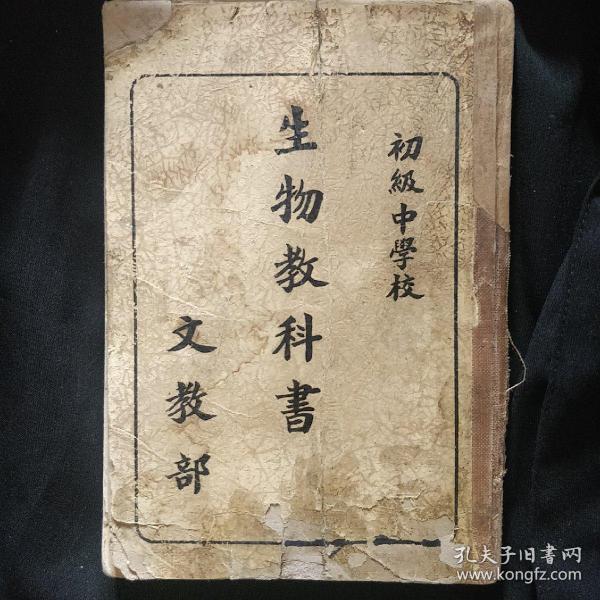 初級中學校
生物教科書
文教部
孔夫子旧書网
www.kongfz.com